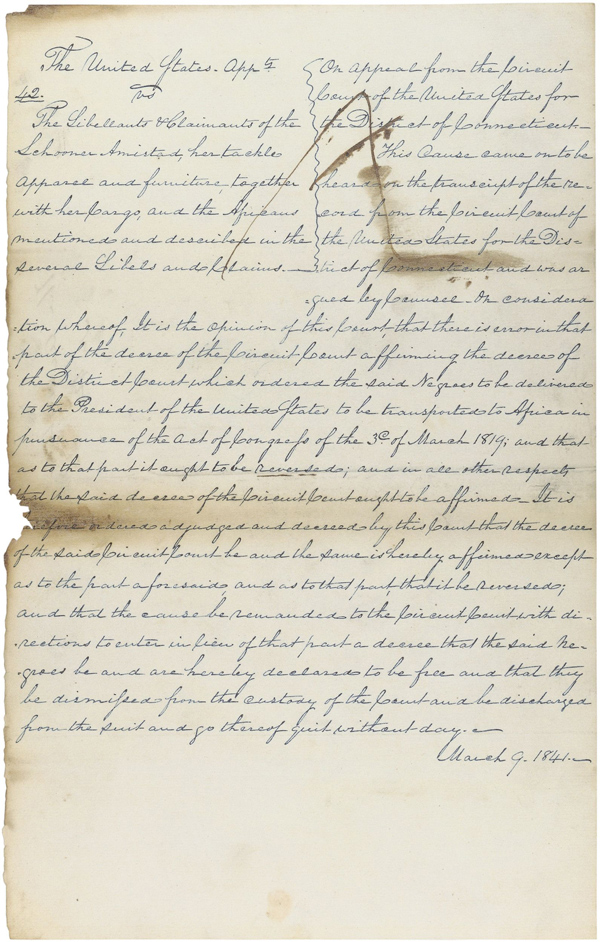 The United States. Appts.
42.
vs
The Libellants & Claimants of the
Schooner Amistad, her tackle
apparel and furniture, together
with her Cargo, and the Africans
mentioned and described in the
several Libels and Claims.
On appeal from the Circuit
Court of the United States for
the District of Connecticut—
This Cause came on to be
heard on the transcript of the re=
cord from the Circuit Court of
the United States for the Dis=
trict of Connecticut and was ar
=gued by Counsel. On considera
=tion whereof, It is the opinion of this Court, that there is error in that
part of the decree of the Circuit Court affirming the decree of
the District Court which ordered the said Negroes to be delivered
to the President of the United States to be transported to Africa in
pursuance of the Act of Congress of the 3d. of March 1819; and that
as to that part it ought to be reversed; and in all other respects
that the said decree of the Circuit Court ought to be affirmed— It is
ordered adjudged and decreed by this Court that the decree
of the said Circuit Court be and the same is hereby affirmed except
as to the part aforesaid, and as to that part, that it be reversed;
and that the cause be remanded to the Circuit Court with di=
=rections to enter in lieu of that part a decree that the said Ne=
=groes be and are hereby declared to be free and that they
be dismissed from the custody of the Court and be discharged
from the suit and go thereof quit without day.—
March 9. 1841.—